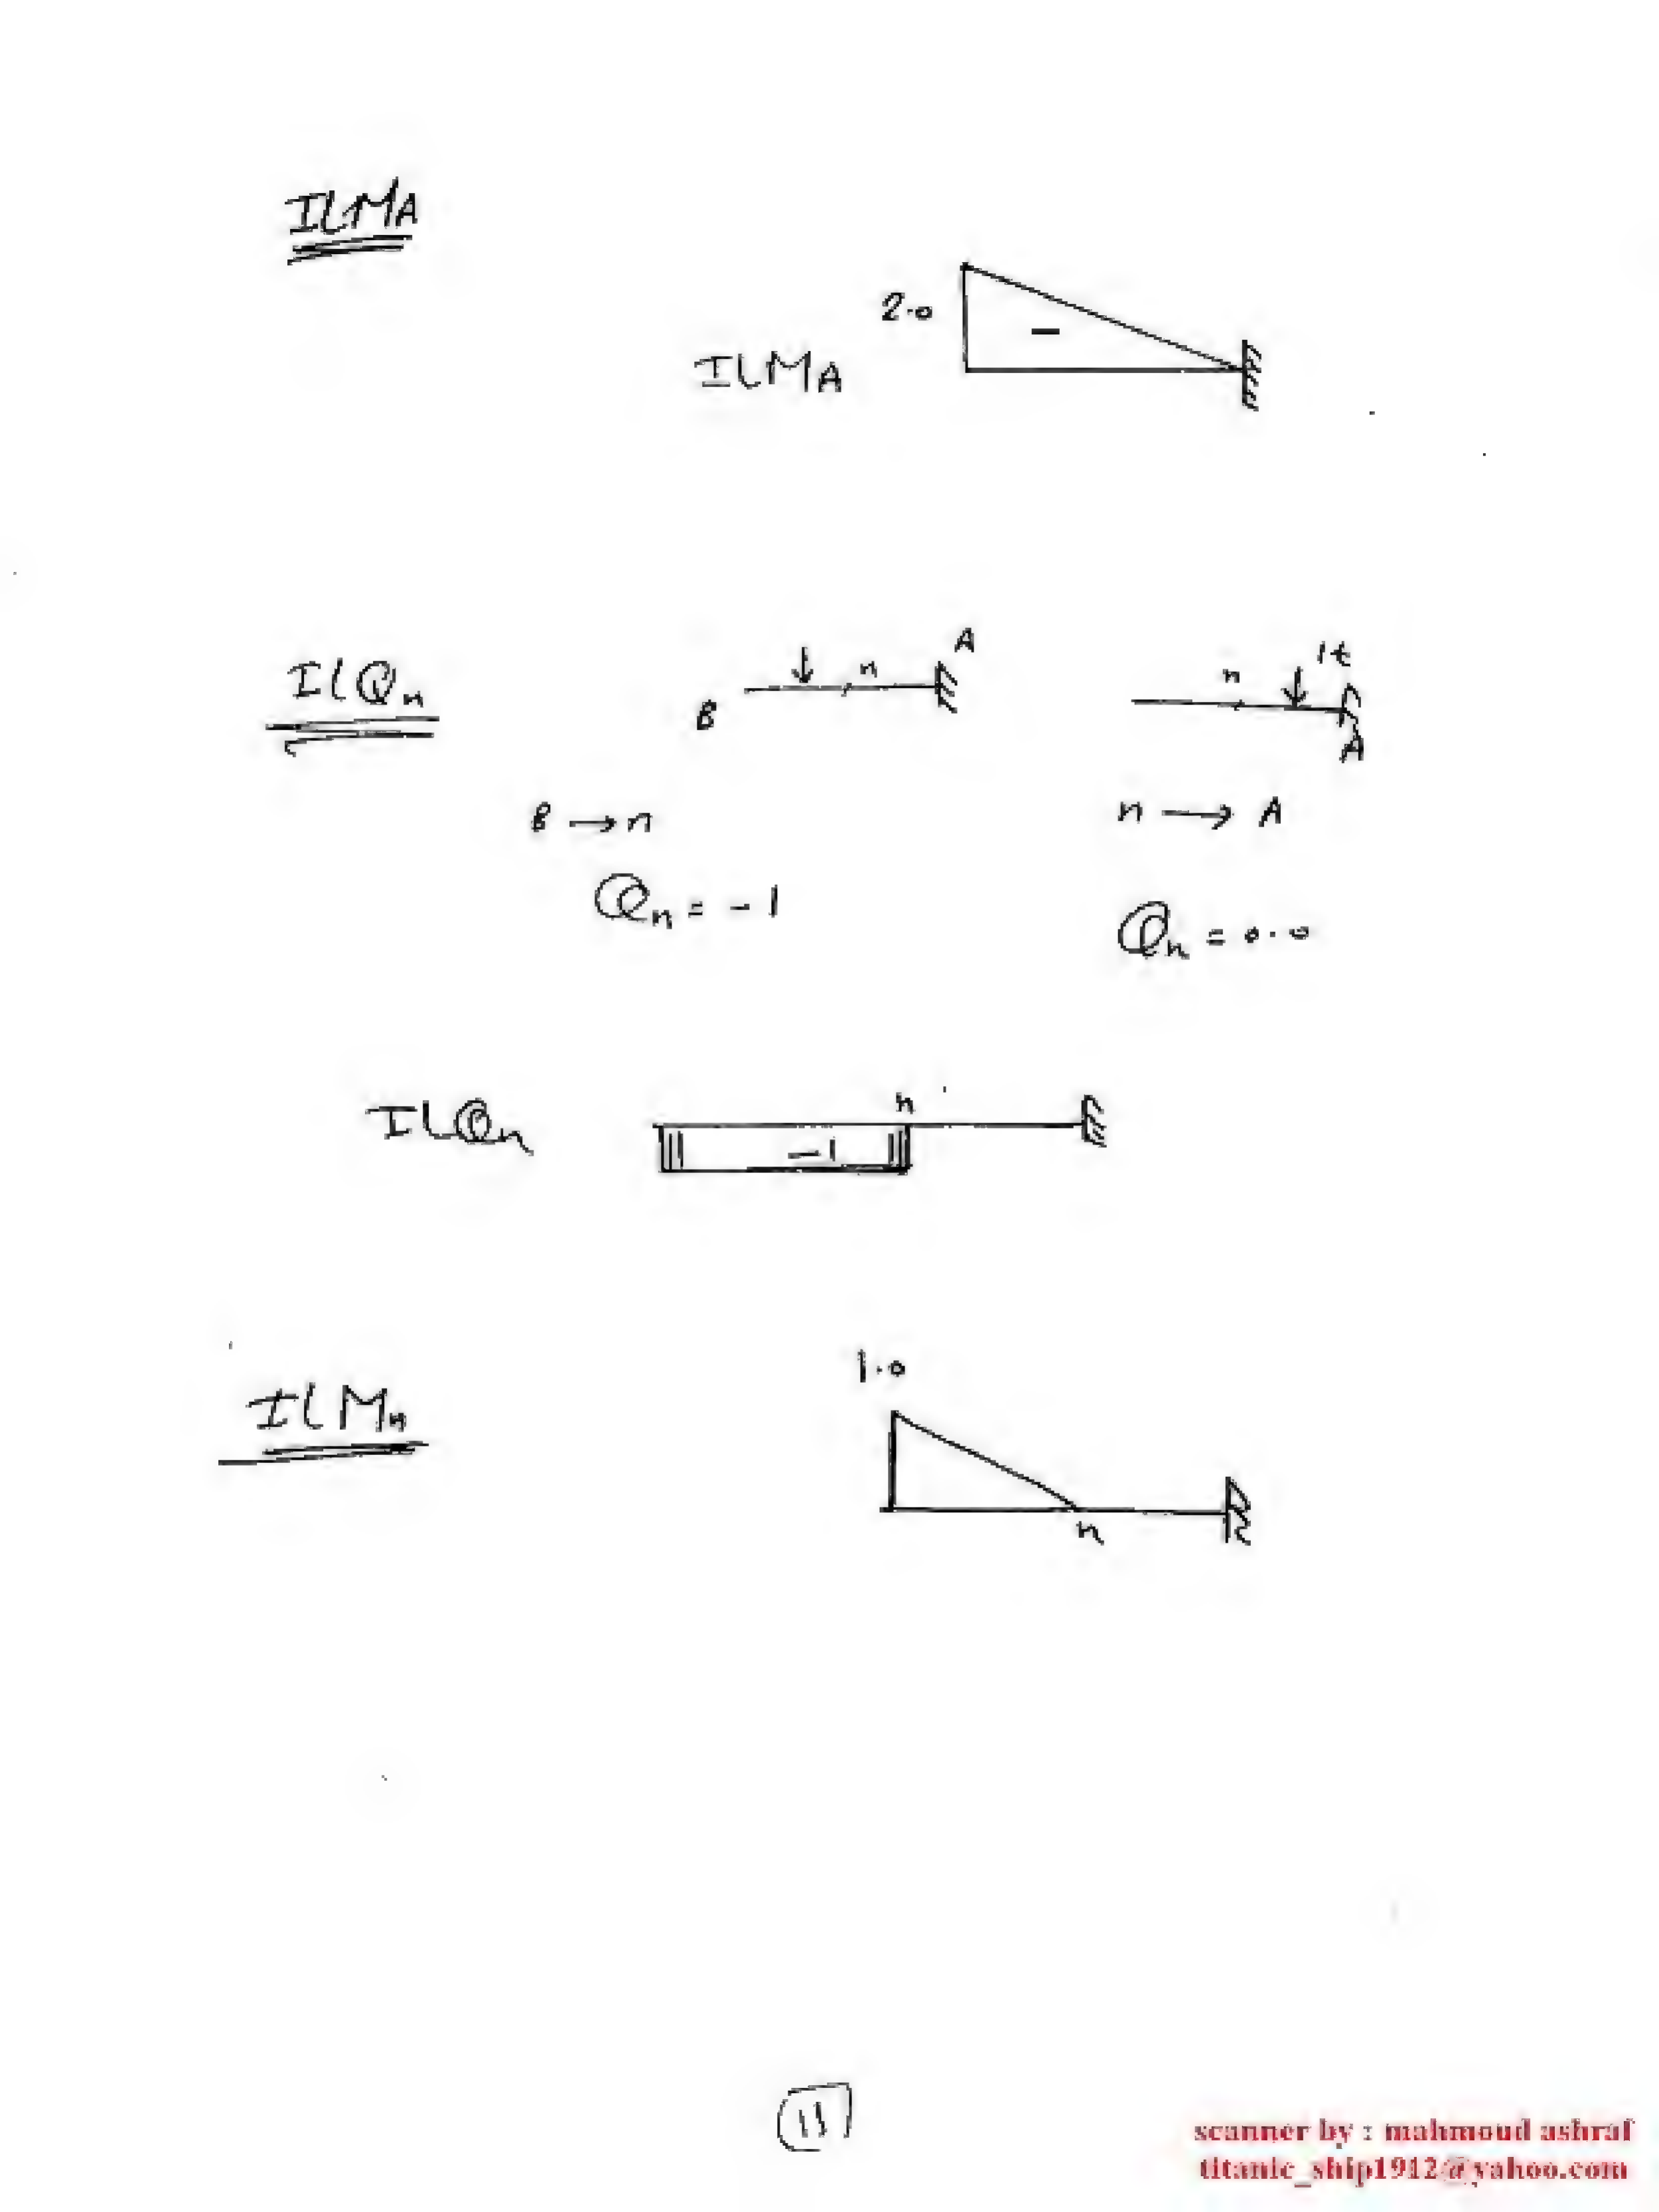 ILMA
2.0
-
ILMA
ILQn
B n A
n 1t A
B → n
n → A
Qn = -1
Qn = 0.0
ILQn
n
-1
ILMn
1.0
n
11
scanner by : mahmoud ashraf
titanic_ship1912@yahoo.com